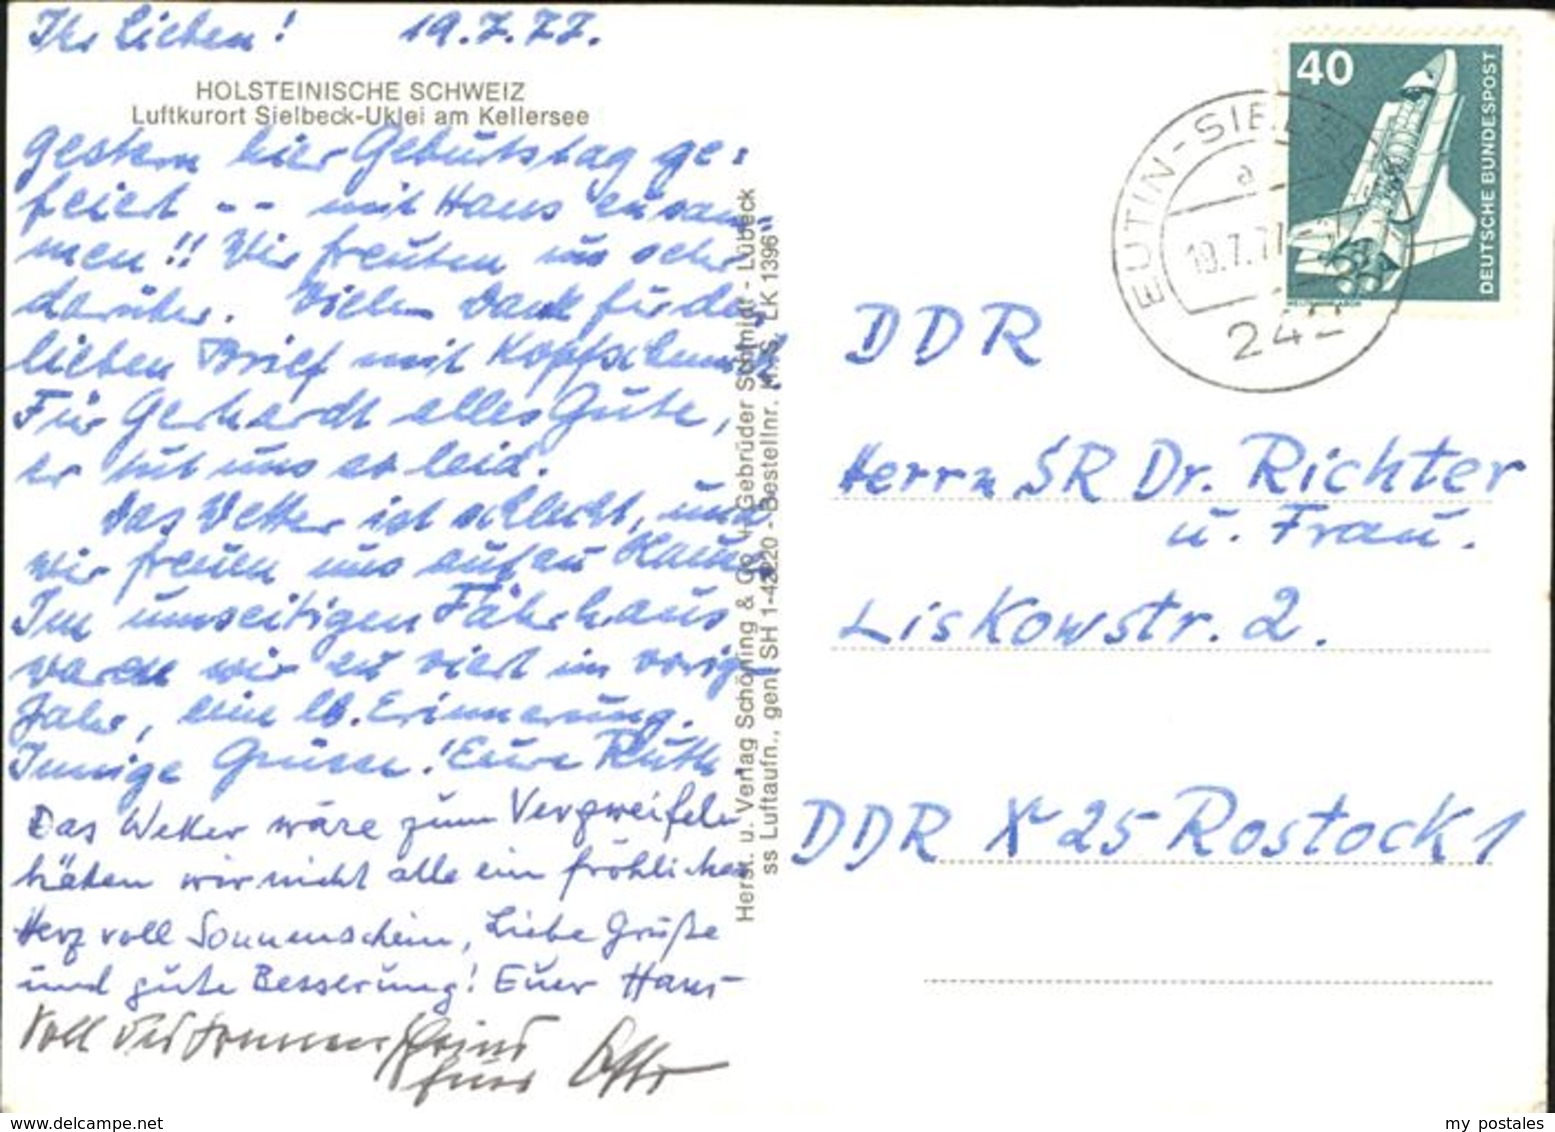 Ihr Lieben! 19.7.77.
HOLSTEINISCHE SCHWEIZ
Luftkurort Sielbeck-Uklei am Kellersee
Gestern hier Geburtstag ge=
feiert -- mit Haus zusam-
men!! Wir freuten uns sehr
darüber. Vielen Dank für den
lieben Brief mit Kopfschmuck
Für Gerhardt alles Gute,
er tut uns so leid.
Das Wetter ist schlecht, und
wir freuen uns auf zu Hause
Im umseitigen Fährhaus
waren wir zu viert im vorig.
Jahr, eine lb. Erinnerung.
Innige Grüsse! Eure Ruth
Das Wetter wäre zum Verzweifeln
hätten wir nicht alle ein fröhliches
Herz voll Sonnenschein, Liebe Grüße
und gute Besserung! Euer Hans
Voll
Otto
Herst. u. Verlag Schöning & Co + Gebrüder Schmidt - Lübeck
ss Luftaufn., gen. SH 1-43220 - Bestellnr. LK 1396
40
DEUTSCHE BUNDESPOST
EUTIN-SIELBECK
a
19.7.77
242
DDR
Herrn SR Dr. Richter
u. Frau.
Liskowstr. 2.
DDR X 25 Rostock 1
www.delcampe.net
my_postales